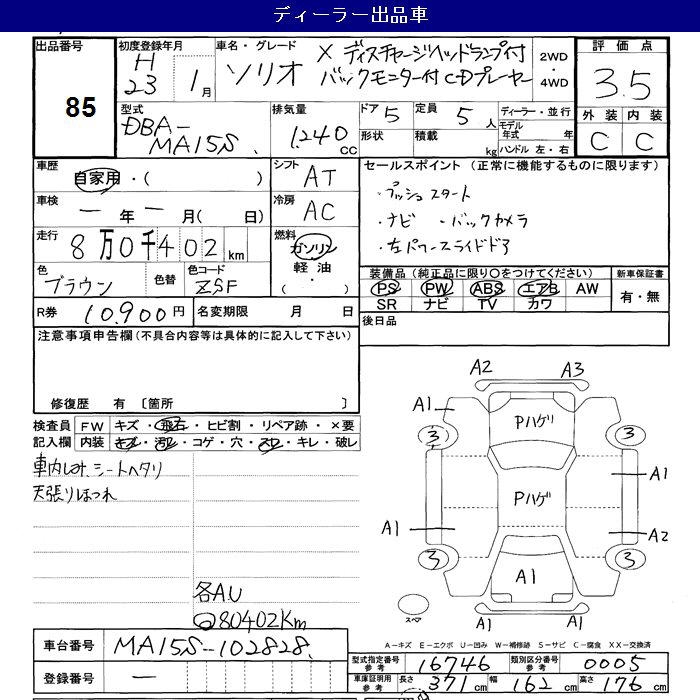 ディーラー出品車
出品番号 85
初度登録年月 H 23 1月
車名・グレード ソリオ X ディスチャージヘッドランプ付
バックモニター付 CDプレーヤー
2WD・4WD
評価点 3.5
型式 DBA-MA15S
排気量 1.240 cc
ドア 5
形状
定員 5人
積載 kg
ディーラー・並行
モデル年式 年
ハンドル 左・右
外装 内装
C C
車歴 自家用・( )
シフト AT
車検 ー年ー月( 日)
冷房 AC
走行 8万0千402km
燃料 ガソリン
軽油
・( )
色 ブラウン
色替
色コード ZSF
R券 10.900円
名変期限 月 日
セールスポイント (正常に機能するものに限ります)
・プッシュスタート
・ナビ ・バックカメラ
・左パワースライドドア
装備品 (純正品に限り○をつけてください)
新車保証書
PS PW ABS エアB AW
有・無
SR ナビ TV カワ
後日品
注意事項申告欄(不具合内容等は具体的に記入して下さい)
修復歴 有 〔箇所 〕
検査員 FW キズ・飛石・ヒビ割・リペア跡・×要
記入欄 内装 キズ・汚レ・コゲ・穴・スレ・キレ・破レ
車内しみ、シートヘタリ
天張りほつれ
各AU
80402Km
A2 A3
A1
Pハゲ
3 3
A1
Pハゲ
A1 A2
3 3
A1
スペア
A1
A-キズ E-エクボ U-凹み W-補修跡 S-サビ C-腐食 XX-交換済
車台番号 MA15S-102828
型式指定番号 参考 16746
類別区分番号 参考 0005
登録番号 ー
車庫証明用 参考 長さ 371cm 幅 162cm 高さ 176cm